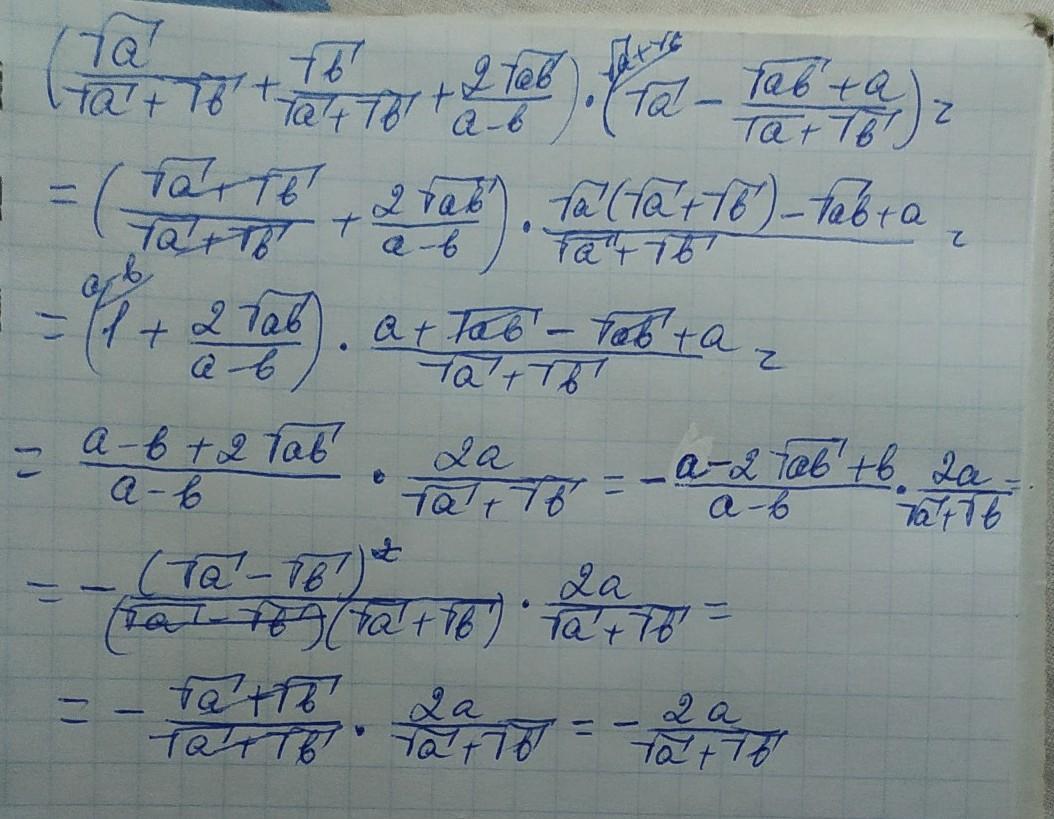 (√a/(√a + √b) + √b/(√a + √b) + 2√ab/(a-b)) · (√a - (√ab + a)/(√a + √b)) =
= ((√a + √b)/(√a + √b) + 2√ab/(a-b)) · (√a(√a + √b) - √ab + a)/(√a + √b) =
= (1 + 2√ab/(a-b)) · (a + √ab - √ab + a)/(√a + √b) =
= (a-b + 2√ab)/(a-b) · 2a/(√a + √b) = - (a-2√ab + b)/(a-b) · 2a/(√a + √b) =
= - (√a - √b)²/((√a - √b)(√a + √b)) · 2a/(√a + √b) =
= - (√a + √b)/(√a + √b) · 2a/(√a + √b) = - 2a/(√a + √b)